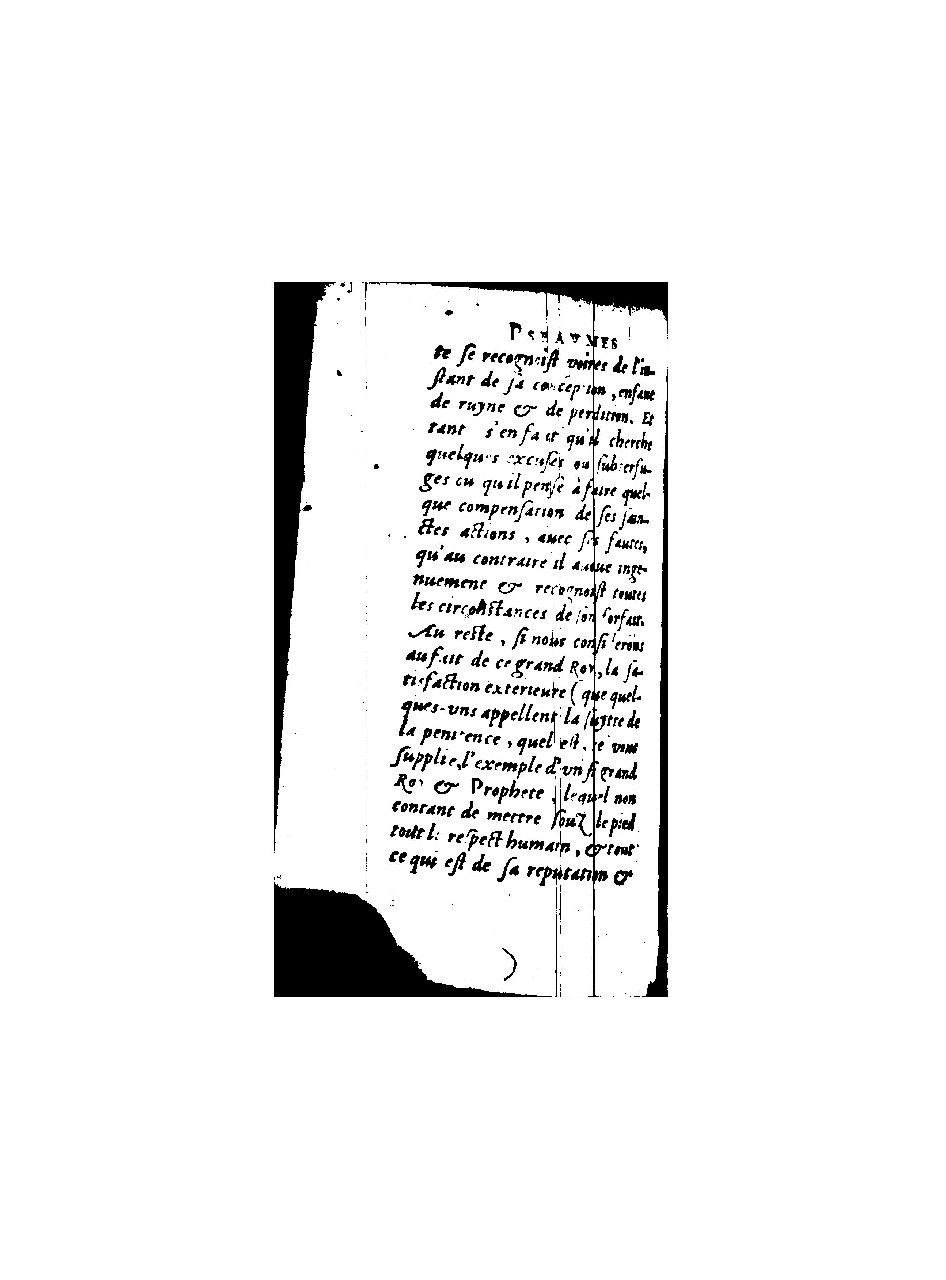 PSEAVMES
te se recognoist voires de l'in-
stant de sa conception, enfant
de ruyne & de perdition. Et
tant s'en faut qu'il cherche
quelques excuses ou subterfu-
ges ou qu'il pense à faire quel-
que compensation de ses sain-
ctes actions, auec ses fautes,
qu'au contraire il auoue inge-
nuement & recognoist toutes
les circonstances de son forfait.
Au reste, si nous considerons
au fait de ce grand Roy, la sa-
tisfaction exterieure (que quel-
ques-vns appellent la suytte de
la penitence, quel est, ie vous
supplie, l'exemple d'vn si grand
Roy & Prophete, lequel non
contant de mettre souz le pied
tout le respect humain, & tout
ce qui est de sa reputation &